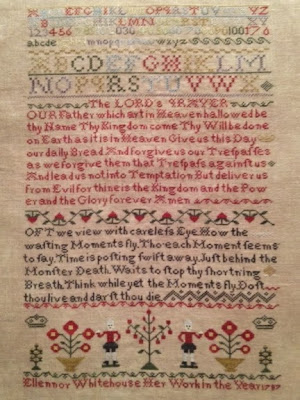 A EFGHIK OPQRSTUV YZ
B HIKLMN XY
abcde mnopq wxyz
ABCDEFGHIKLM
NOPQRSTUVWXZ
The LORD's PRAYER
OUR Father which art in Heaven hallowed be
thy Name Thy Kingdom come Thy Will be done
on Earth as it is in Heaven Give us this Day
our daily Bread And forgive us our Trefpafses
as we forgive them that Trefpafs againft us
And lead us not into Temptation But deliver us
from Evil for thine is the Kingdom and the Pow
er and the Glory for ever Amen
OFT we view with carelefs Eye How the
wafting Moments fly Tho each Moment feems
to fay Time is pofting fwift away Juft behind the
Monfter Death Waits to ftop thy fhortning
Breath Think while yet the Moments fly Doft
thou live and darft thou die
Ellennor Whitehouse Her Work in the Year 1787